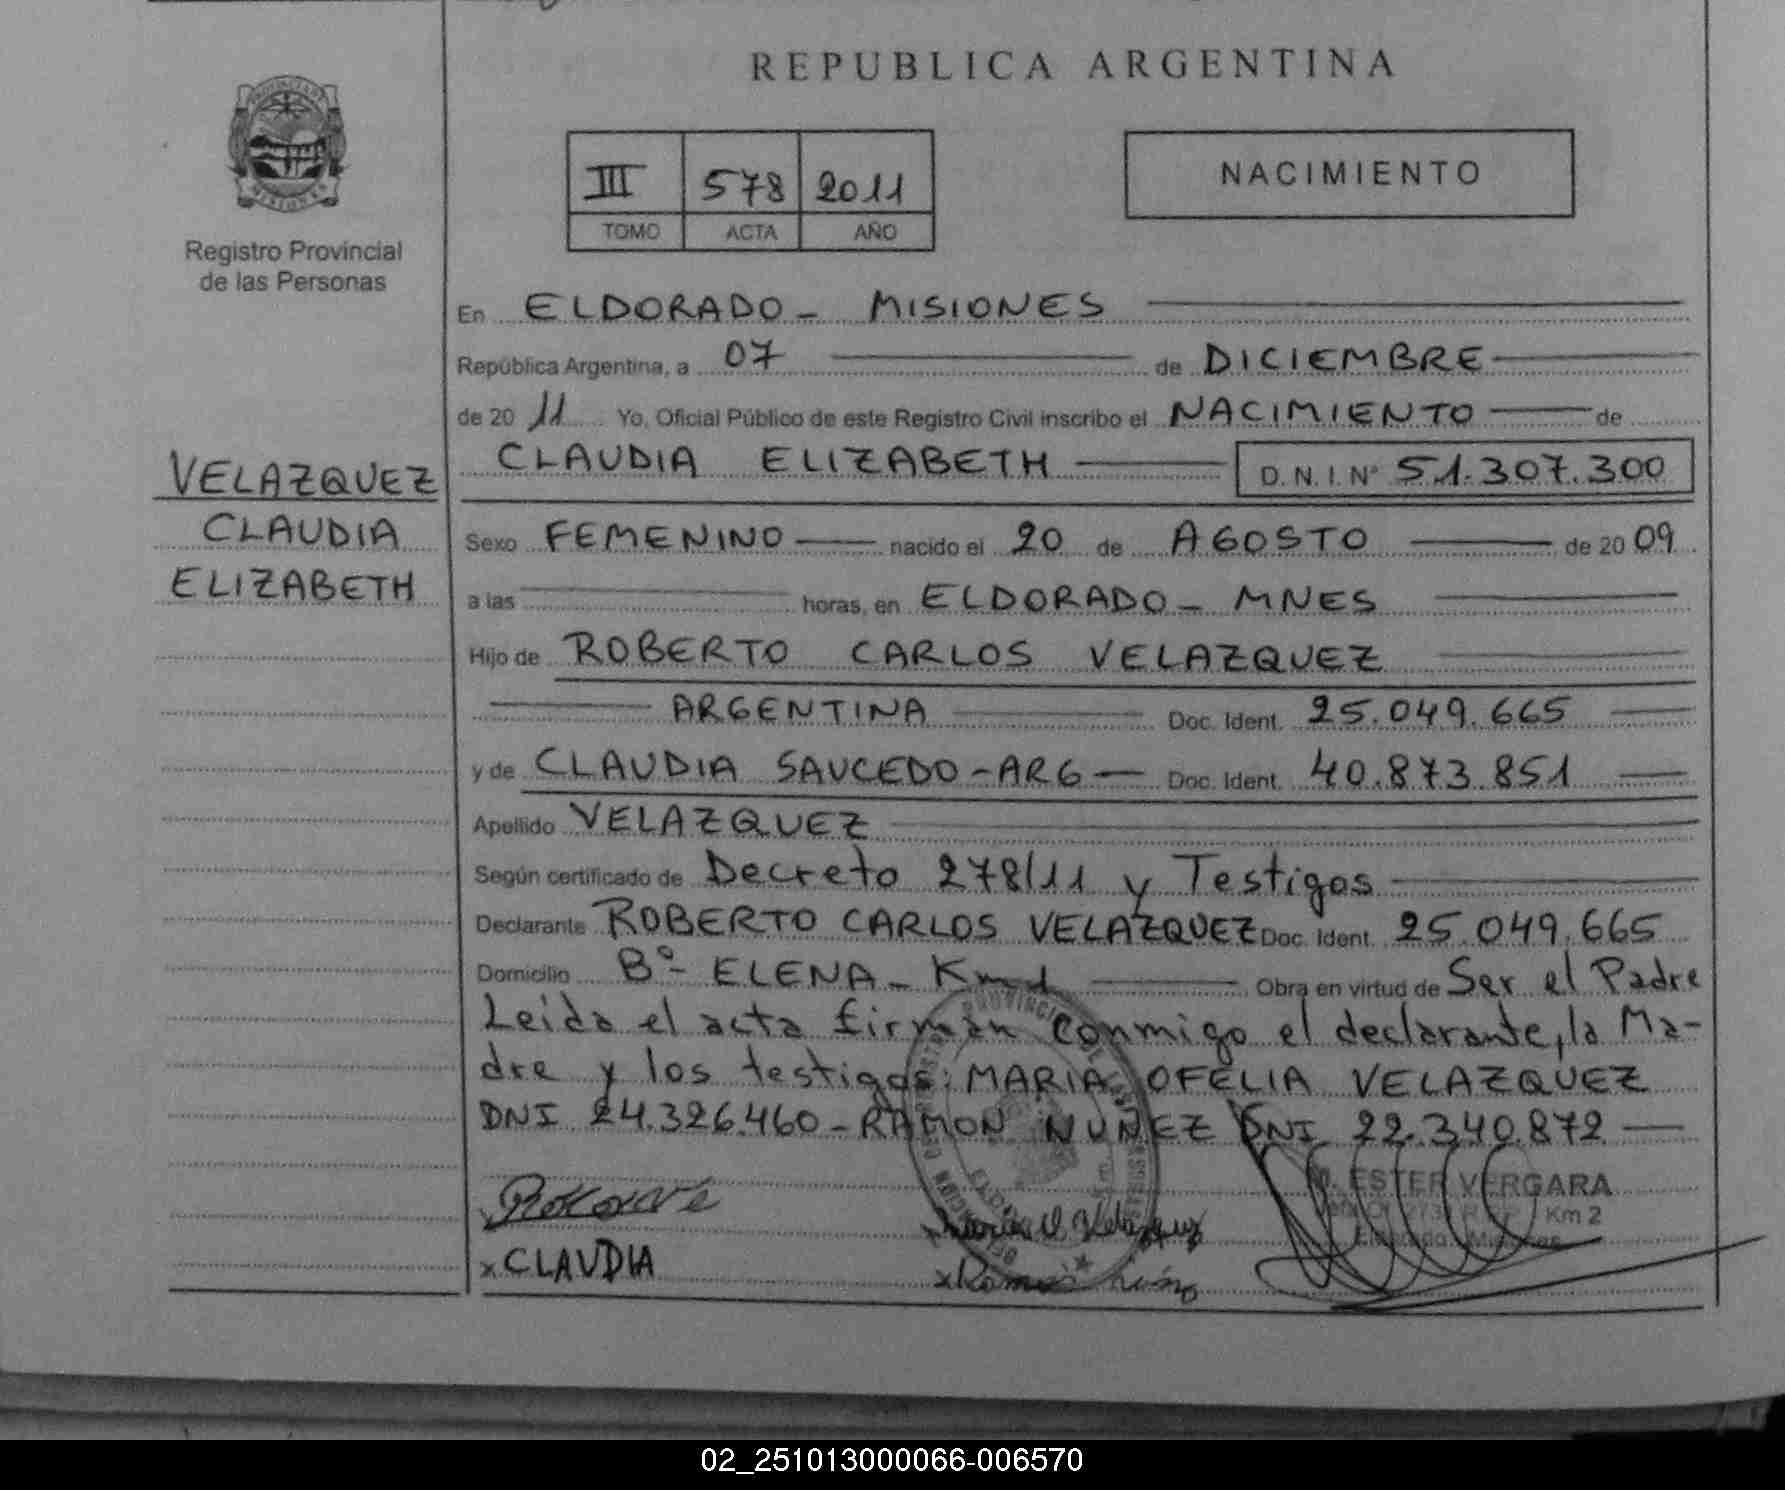 REPUBLICA ARGENTINA
III 578 2011
TOMO ACTA AÑO
NACIMIENTO
PROVINCIA DE
MISIONES
Registro Provincial
de las Personas
VELAZQUEZ
CLAUDIA
ELIZABETH
En ELDORADO - MISIONES
República Argentina, a 07 de DICIEMBRE
de 20 11 Yo, Oficial Público de este Registro Civil inscribo el NACIMIENTO de
CLAUDIA ELIZABETH D.N.I. Nº 51.307.300
Sexo FEMENINO nacido el 20 de AGOSTO de 20 09
a las horas, en ELDORADO - MNES
Hijo de ROBERTO CARLOS VELAZQUEZ
ARGENTINA Doc. Ident. 25.049.665
y de CLAUDIA SAUCEDO - ARG - Doc. Ident. 40.873.851
Apellido VELAZQUEZ
Según certificado de Decreto 278/11 y Testigos
Declarante ROBERTO CARLOS VELAZQUEZ Doc. Ident. 25.049.665
Domicilio Bº ELENA - Km 1 Obra en virtud de Ser el Padre
Leida el acta firman conmigo el declarante, la Ma-
dre y los testigos: MARIA OFELIA VELAZQUEZ
DNI 24.326.460 - RAMON NUÑEZ DNI 22.340.872
M. ESTER VERGARA
Km 2
Eldorado - Misiones
x CLAUDIA
02_251013000066-006570